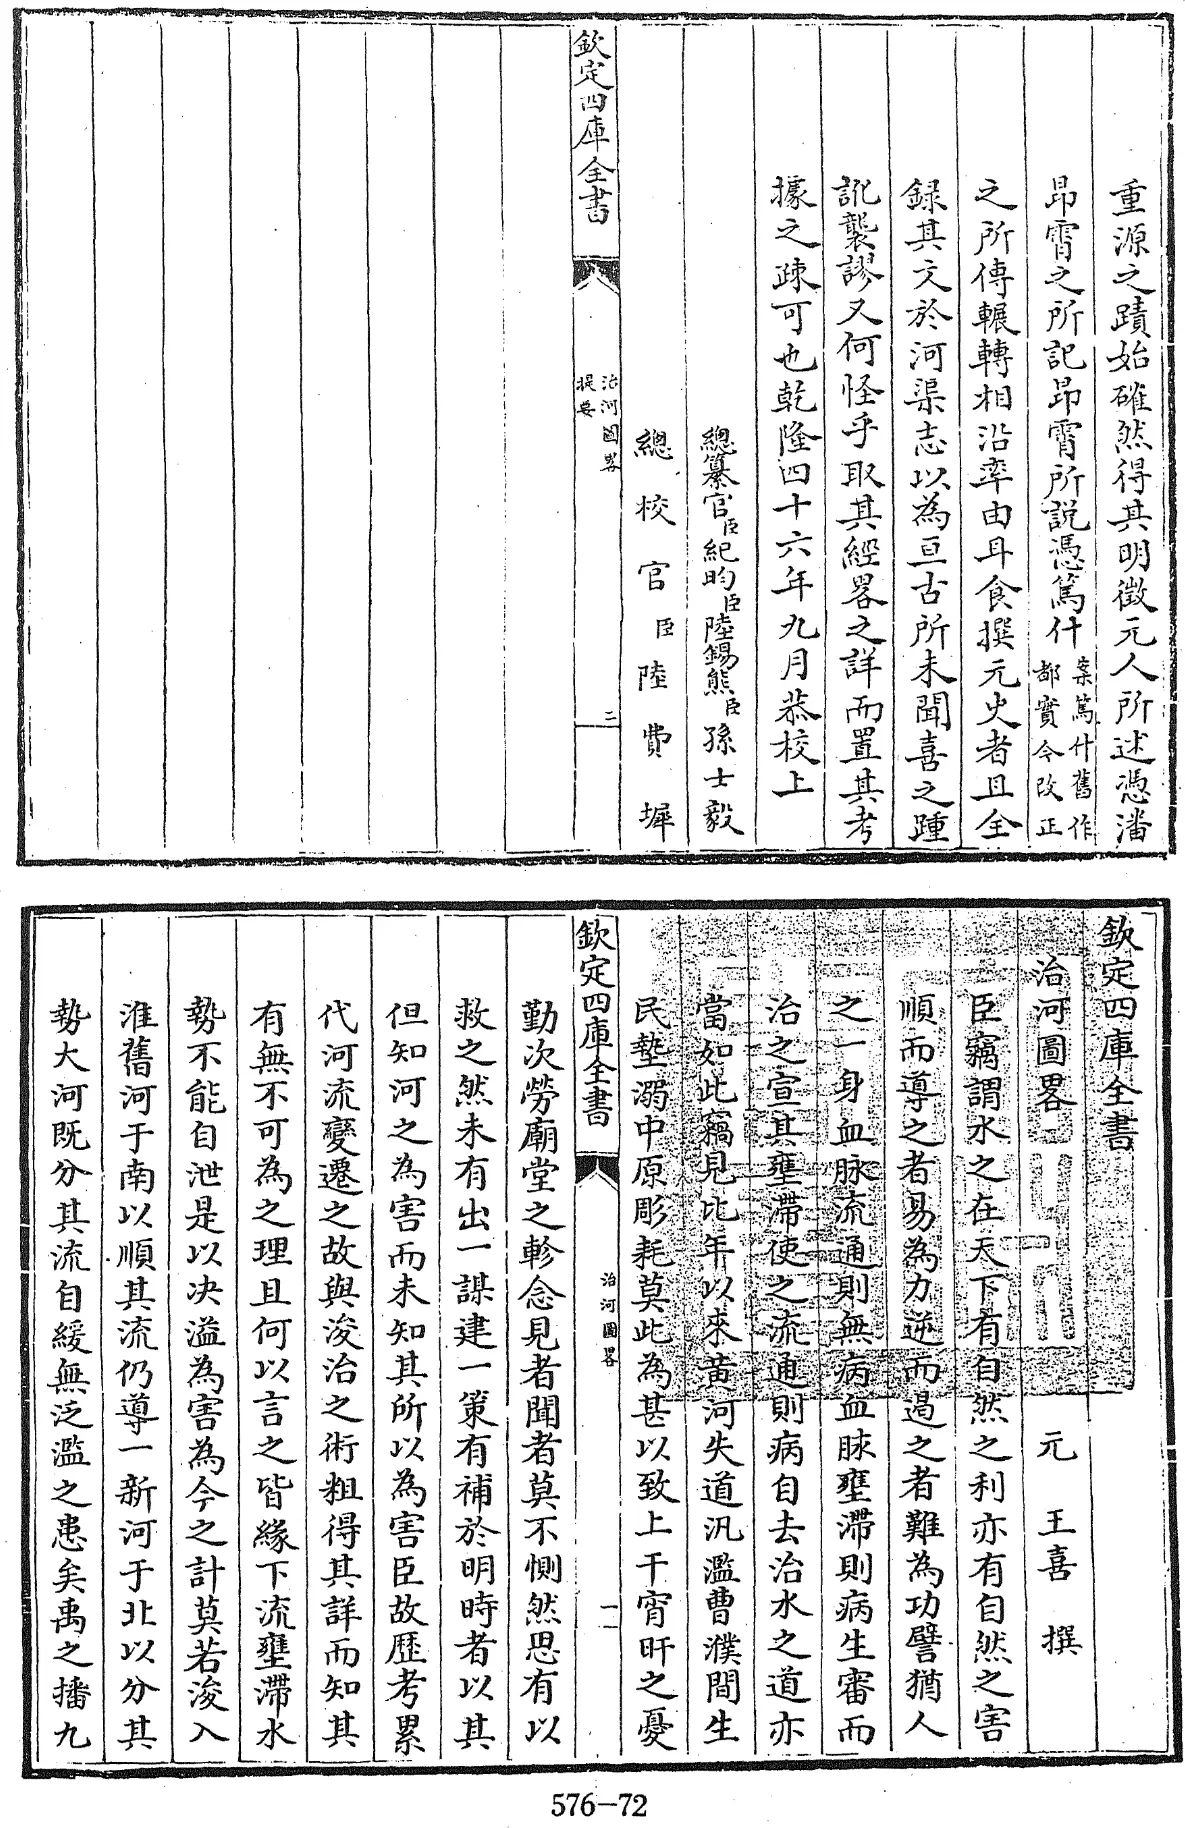 重源之蹟始確然得其明徴元人所述憑潘
昂霄之所記昂霄所説憑篤什案篤什舊作都實今改正
之所傳輾轉相沿率由耳食撰元史者且全
録其文於河渠志以為亘古所未聞喜之踵
訛襲謬又何怪乎取其經畧之詳而置其考
據之疎可也乾隆四十六年九月恭校上
總纂官臣紀昀臣陸錫熊臣孫士毅
總校官臣陸費墀
欽定四庫全書
治河圖畧
提要
三
欽定四庫全書
治河圖畧
元 王喜 撰
臣竊謂水之在天下有自然之利亦有自然之害
順而導之者易為力逆而遏之者難為功譬猶人
之一身血脉流通則無病血脉壅滯則病生審而
治之宣其壅滯使之流通則病自去治水之道亦
當如此竊見比年以來黄河失道汎濫曹濮間生
民墊溺中原彫耗莫此為甚以致上干宵旰之憂
欽定四庫全書
治河圖畧
一
勤次勞廟堂之軫念見者聞者莫不惻然思有以
救之然未有出一謀建一策有補於明時者以其
但知河之為害而未知其所以為害臣故歴考累
代河流變遷之故與浚治之術粗得其詳而知其
有無不可為之理且何以言之皆緣下流壅滯水
勢不能自泄是以决溢為害為今之計莫若浚入
淮舊河于南以順其流仍導一新河于北以分其
勢大河既分其流自緩無泛濫之患矣禹之播九
576-72